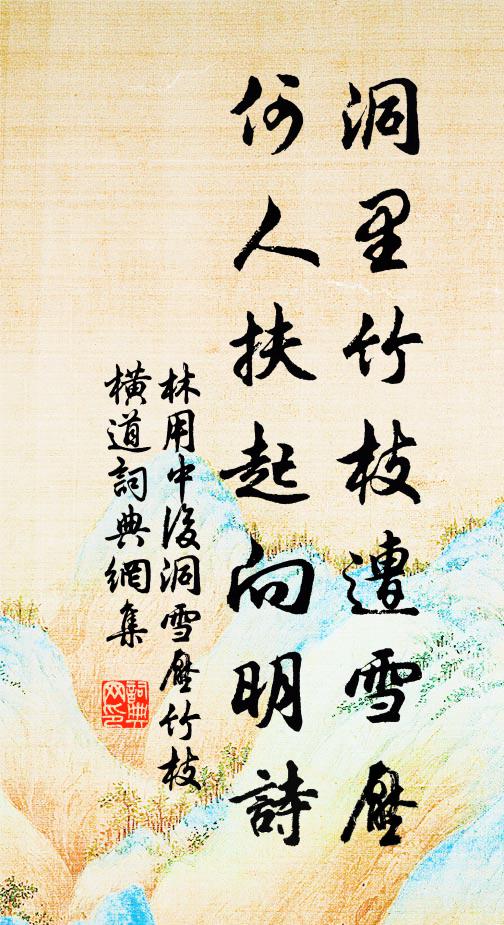 洞里竹枝遭雪壓
何人扶起向明詩
林用中後洞雪壓竹枝
橫道詞典網集
詞典網印